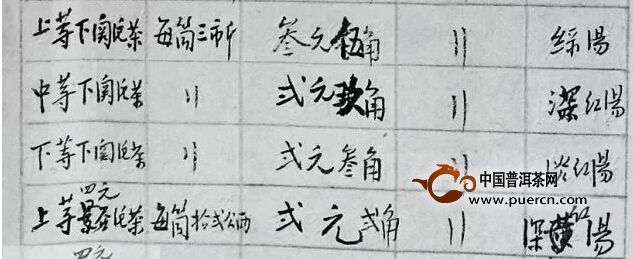 上等下関沱茶 每筒三市斤 叁元伍角 〃 綠湯
中等下関沱茶 〃 弍元玖角 〃 深紅湯
下等下関沱茶 〃 弍元叁角 〃 淡紅湯
四元
上等景谷沱茶 每筒拾弍公両 弍元弍角 〃 深黄湯
红
四元
中国普洱茶网
www.puercn.com